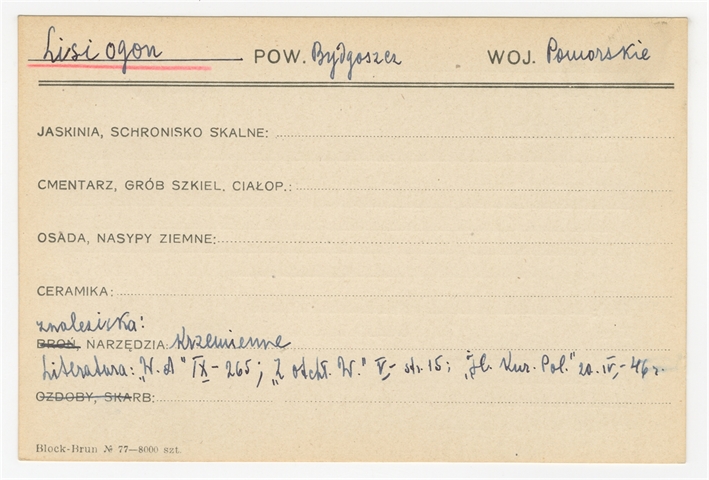 Lisi ogon POW. Bydgoszcz WOJ. Pomorskie
JASKINIA, SCHRONISKO SKALNE:
CMENTARZ, GRÓB SZKIEL. CIAŁOP.:
OSADA, NASYPY ZIEMNE:
CERAMIKA:
znalezicka:
BROŃ, NARZĘDZIA: Krzemienne
Literatura: "W. A" IX - 265; "Z otchł. W." V - str. 15; "Jl. Kur. Pol." 20.IV.-46 r.
OZDOBY, SKARB:
Block-Brun № 77—8000 szt.